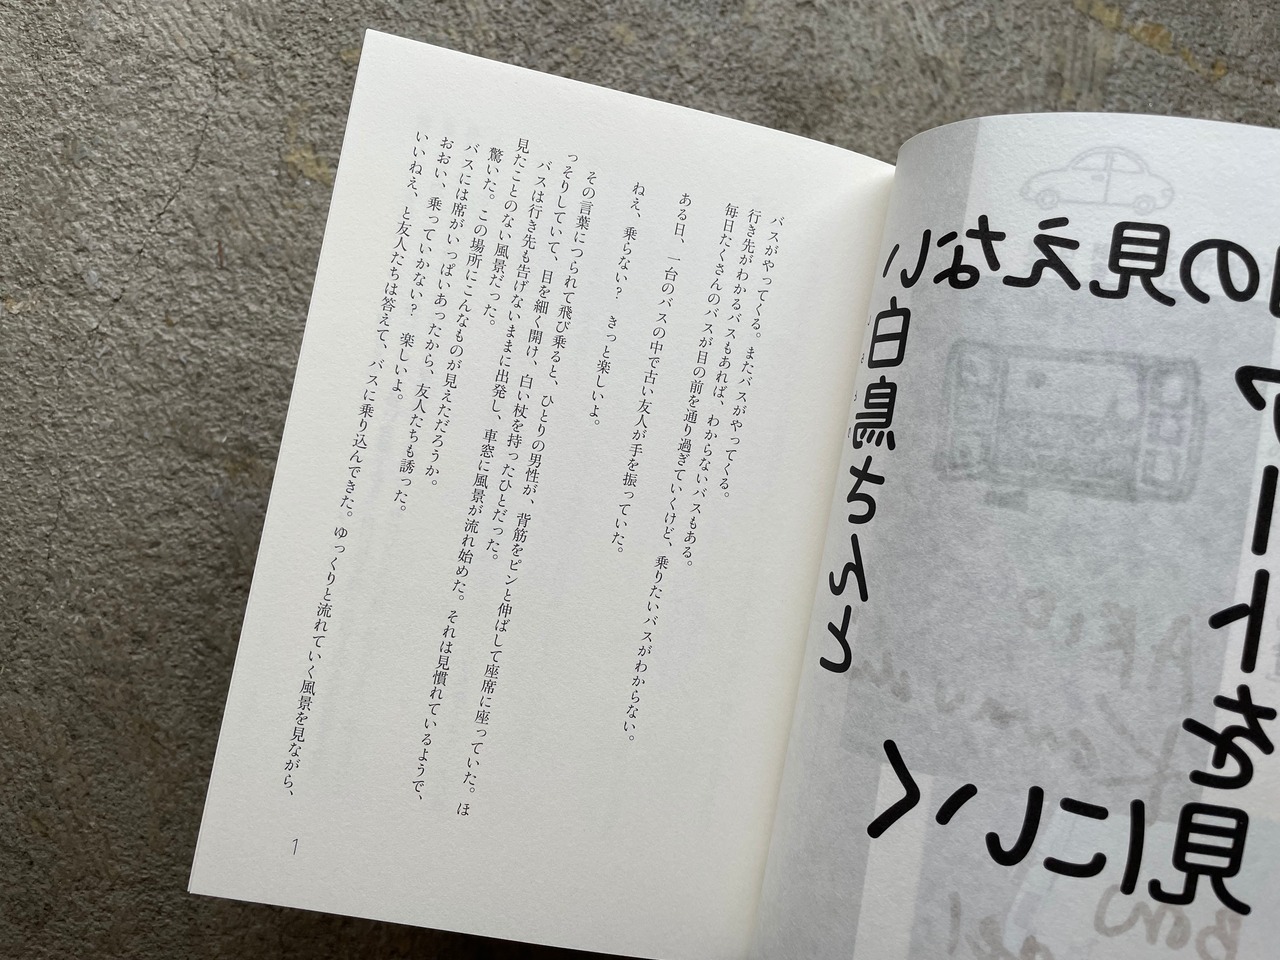 の見えない
白鳥さんと
アートを
見にいく
バスがやってくる。またバスがやってくる。
行き先がわかるバスもあれば、わからないバスもある。
毎日たくさんのバスが目の前を通り過ぎていくけど、乗りたいバスがわからない。
ある日、一台のバスの中で古い友人が手を振っていた。
ねえ、乗らない？　きっと楽しいよ。
その言葉につられて飛び乗ると、ひとりの男性が、背筋をピンと伸ばして座席に座っていた。ほ
っそりしていて、目を細く開け、白い杖を持ったひとだった。
バスは行き先も告げないままに出発し、車窓に風景が流れ始めた。それは見慣れているようで、
見たことのない風景だった。
驚いた。この場所にこんなものが見えただろうか。
バスには席がいっぱいあったから、友人たちも誘った。
おおい、乗っていかない？　楽しいよ。
いいねえ、と友人たちは答えて、バスに乗り込んできた。ゆっくりと流れていく風景を見ながら、
1